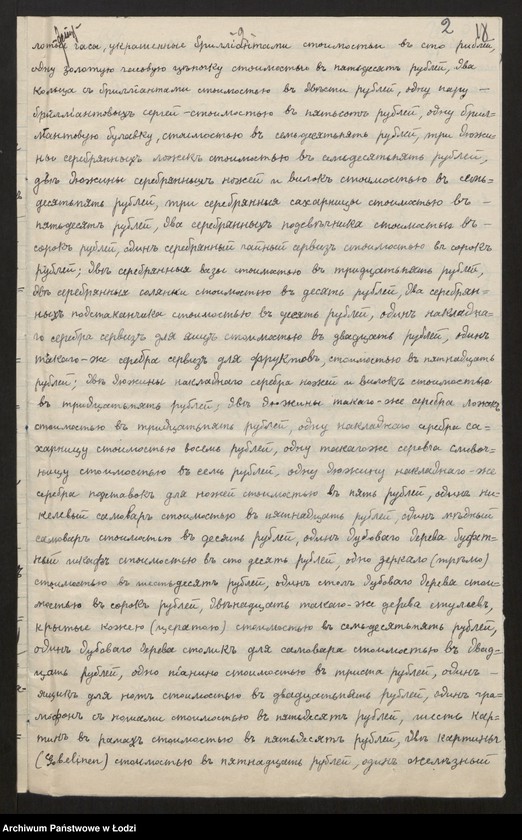 2 18
лотые часа, украшенные бриллiантами стоимостью въ сто рублей,
одну золотую часовую цѣпочку стоимостью въ пятьдесятъ рублей, два
кольца съ бриллiантами стоимостью въ двѣсти рублей, одну пару —
бриллiантовыхъ серегъ стоимостью въ пятьсотъ рублей, одну брил-
лiантовую булавку, стоимостью въ семьдесятъпять рублей, три дюжи-
ны серебрянныхъ ложекъ стоимостью въ семьдесятъпять рублей,
двѣ дюжины серебрянныхъ ножей и вилокъ стоимостью въ семь-
десятъпять рублей, три серебрянныя сахарницы стоимостью въ —
пятьдесятъ рублей, два серебрянныхъ подсвѣчника стоимостью въ —
сорокъ рублей, одинъ серебрянный чайный сервизъ стоимостью въ сорокъ
рублей; двѣ серебрянныя вазы стоимостью въ тридцатьпять рублей,
двѣ серебрянныя солянки стоимостью въ десять рублей, два серебрян-
ныхъ подстаканчика стоимостью въ десять рублей, одинъ накладна-
го серебра сервизъ для яицъ стоимостью въ двадцать рублей, одинъ
такаго-же серебра сервизъ для фруктовъ, стоимостью въ пятнадцать
рублей; двѣ дюжины накладнаго серебра ножей и вилокъ стоимостью
въ тридцатьпять рублей; двѣ дюжины такаго-же серебра ложекъ
стоимостью въ тридцатьпять рублей, одну накладнаго серебра са-
харницу стоимостью восемь рублей, одну такагоже серебра сливоч-
ницу стоимостью въ семь рублей, одну дюжину накладнаго-же
серебра подставокъ для ножей стоимостью въ пять рублей, одинъ ни-
келевый самоваръ стоимостью въ пятнадцать рублей, одинъ мѣдный
самоваръ стоимостью въ десять рублей, одинъ дубоваго дерева буфет-
ный шкафъ стоимостью въ сто десять рублей, одно зеркало (трюмо)
стоимостью въ шестьдесятъ рублей, одинъ столъ дубоваго дерева стои-
мостью въ сорокъ рублей, двѣнадцать такаго-же дерева стульевъ,
крытые кожею (цератою) стоимостью въ семьдесятъпять рублей,
одинъ дубоваго дерева столикъ для самовара стоимостью въ двад-
цать рублей, одно пiанино стоимостью въ триста рублей, одинъ —
ящикъ для нотъ стоимостью въ двадцатьпять рублей, одинъ гра-
мофонъ съ нотами стоимостью въ пятьдесятъ рублей, шесть кар-
тинъ въ рамахъ стоимостью въ пятьдесятъ рублей, двѣ картины
(Gobelinen) стоимостью въ пятнадцать рублей, одинъ желѣзный
Archiwum Państwowe w Łodzi